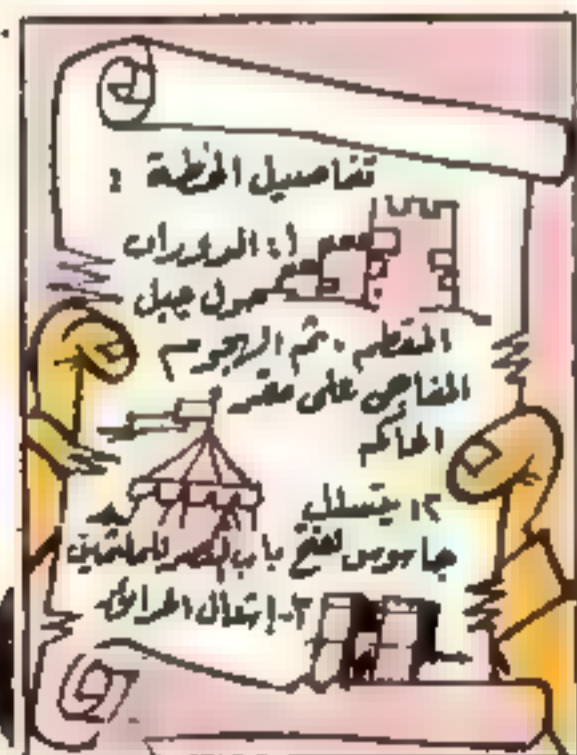 تفاصيل الخطة :
١، الدوران
حول جبل
المقطم ، ثم الهجوم
المفاجئ على مقر
الحاكم
٢، يتسلل
جاسوس لفتح باب القصر للملثمين
٣- إشعال الحرائق